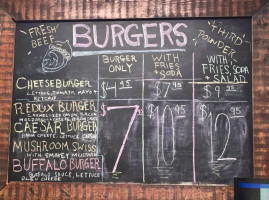 FRESH BEEF
BURGERS
THIRD POUNDER
BURGER ONLY
WITH FRIES + SODA
WITH FRIES, SODA + SALAD
CHEESEBURGER $4 95 $7 95 $9 95
LETTUCE, TOMATO, MAYO +
KETCHUP
REDUX BURGER
CARAMELIZED ONION, BACON
CAESAR BURGER $7 $10 95 $12
PARM CHEESE, LETTUCE
MUSHROOM SWISS
WITH SMOKEY MUSTARD
BUFFALO BURGER
BUFFALO SAUCE, LETTUCE
BLEU CHEESE